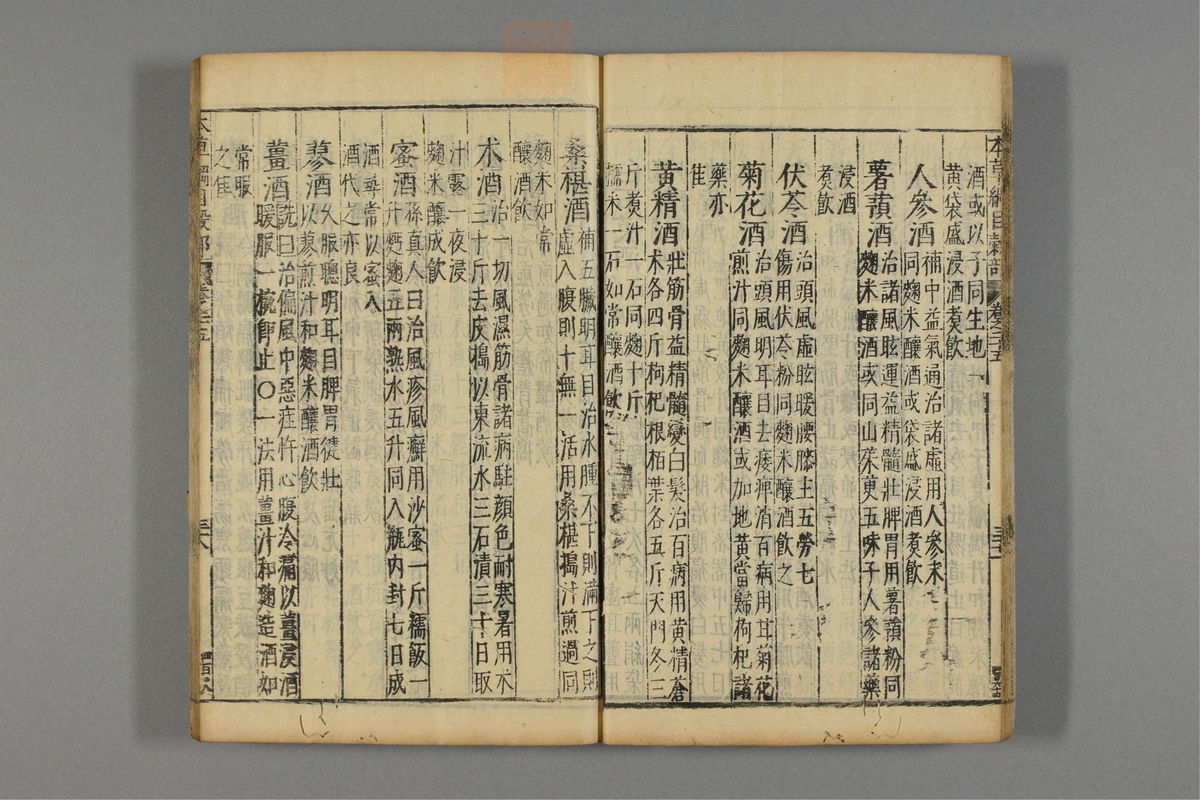 酒或以子同生地一
黄袋盛浸酒煮飲
人參酒補中益氣通治諸虛用人參末
同麴米釀酒或袋盛浸酒煮飲
薯蕷酒治諸風眩運益精髓壯脾胃用薯蕷粉同
麴米釀酒或同山茱萸五味子人參諸藥
浸酒
煮飲
伏苓酒治頭風虛眩暖腰膝主五勞七
傷用伏苓粉同麴米釀酒飲之
菊花酒治頭風明耳目去痿痺消百病用甘菊花
煎汁同麴米釀酒或加地黄當歸枸杞諸
藥亦
佳
黄精酒壯筋骨益精髓變白髮治百病用黄精蒼
术各四斤枸杞根栢葉各五斤天門冬三
斤煮汁一石同麴十斤
糯米一石如常釀酒飲
桑椹酒補五臟明耳目治水腫不下則滿下之則
虛入腹則十無一活用桑椹搗汁煎過同
麴米如常
釀酒飲
术酒治一切風濕筋骨諸病駐顔色耐寒暑用术
三十斤去皮搗以東流水三石漬三十日取
汁露一夜浸
麴米釀成飲
蜜酒孫真人曰治風疹風癬用沙蜜一斤糯飯一
升麪麴五兩熟水五升同入瓶内封七日成
酒尋常以蜜入
酒代之亦良
蓼酒久服聰明耳目脾胃徤壯
以蓼煎汁和麴米釀酒飲
薑酒詵曰治偏風中惡疰忤心腹冷痛以薑浸酒
暖服一碗卽止〇一法用薑汁和麴造酒如
常服
之佳
本草綱目穀部 卷之二五